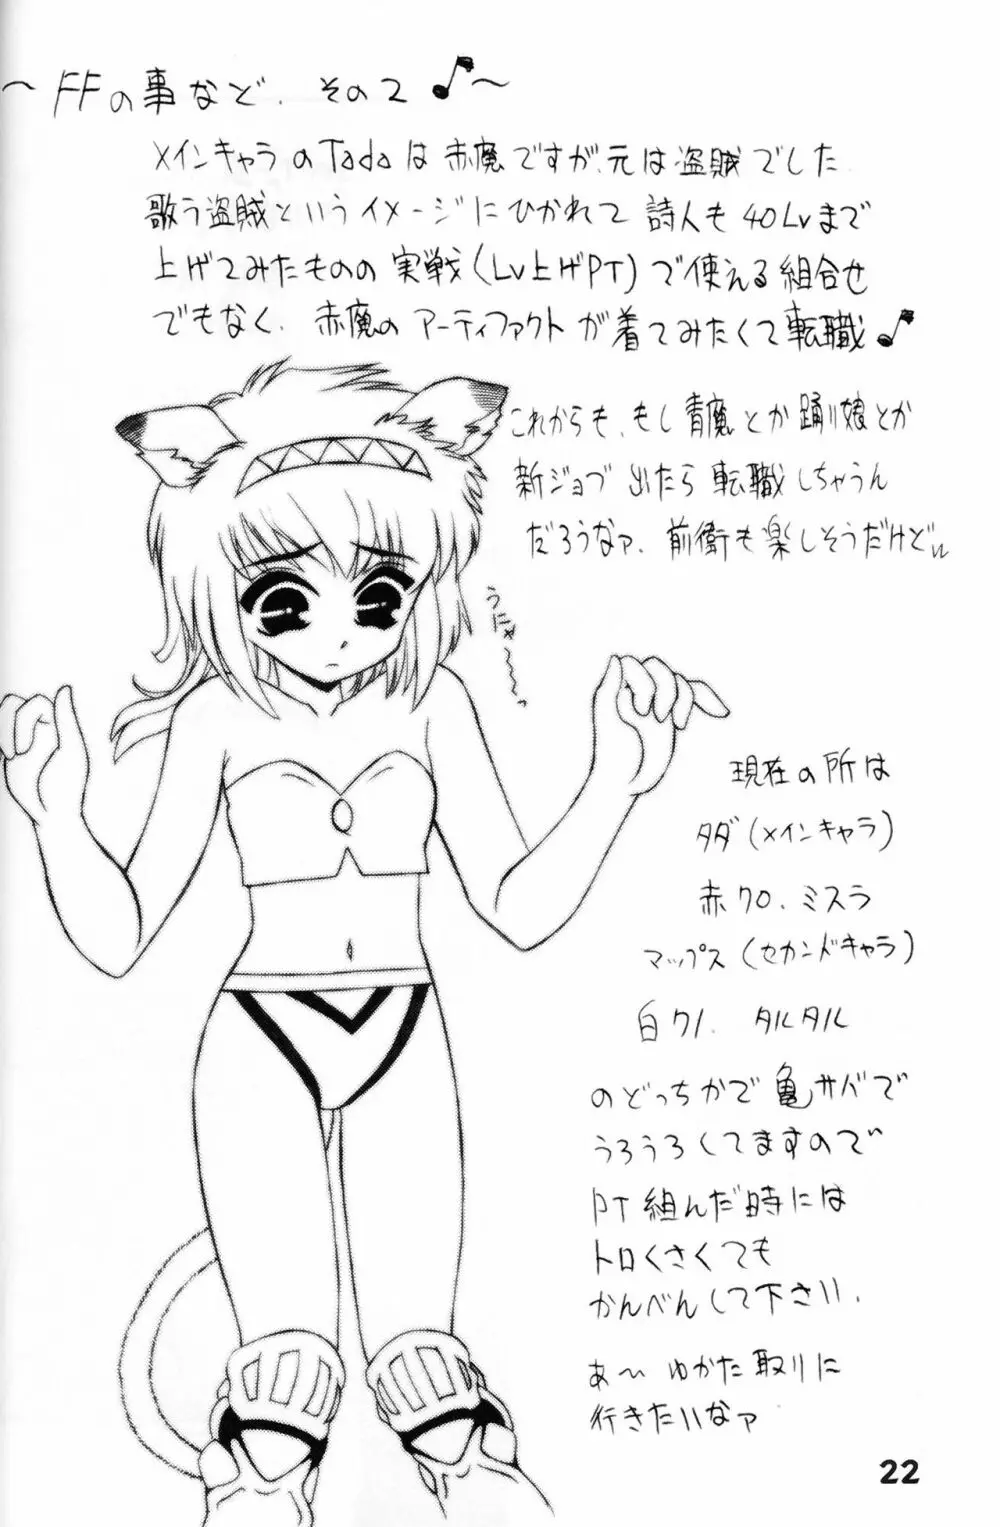 ～FFの事など、その2♪～
メインキャラのTadaは赤魔ですが、元は盗賊でした
歌う盗賊というイメージにひかれて詩人も40Lvまで
上げてみたものの実戦(Lv上げPT)で使える組合せ
でもなく、赤魔のアーティファクトが着てみたくて転職♪
これからも、もし青魔とか踊り娘とか
新ジョブ出たら転職しちゃうん
だろうなァ、前衛も楽しそうだけどぃ
うにゃ～～～っ
現在の所は
タダ(メインキャラ)
赤70、ミスラ
マップス(セカンドキャラ)
白71、タルタル
のどっちかで亀サバで
うろうろしてますので
PT組んだ時には
トロくさくても
かんべんして下さい、
あ～ゆかた取りに
行きたいなァ
22